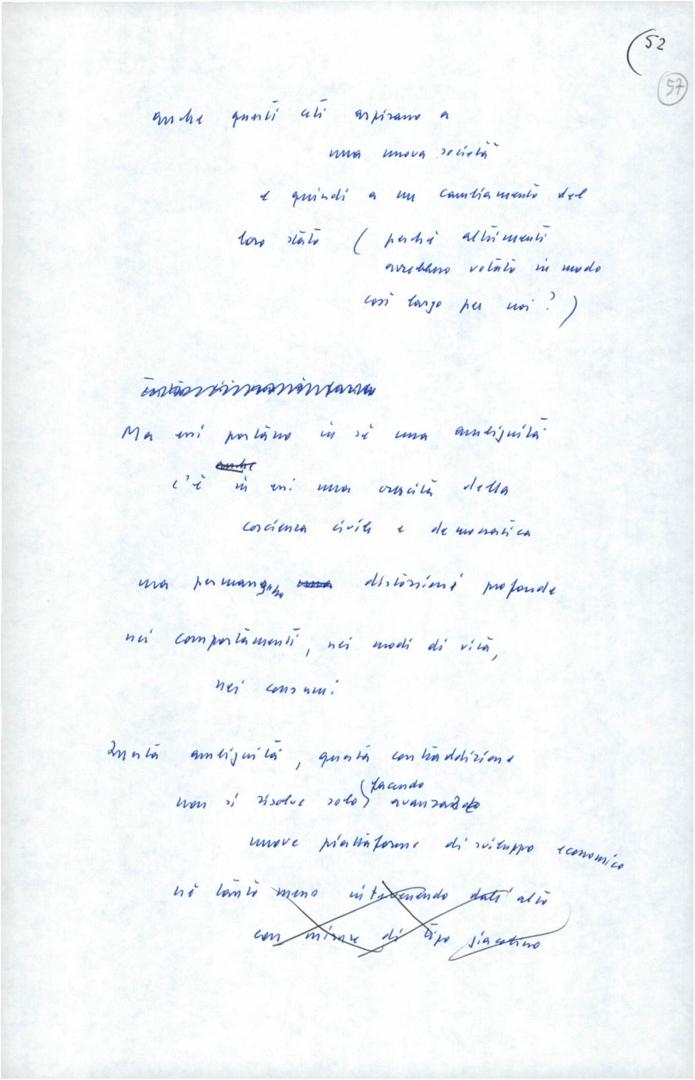 (52
57
anche questi ceti aspirano a
una nuova società
e quindi a un cambiamento del
loro stato ( perché altrimenti
avrebbero votato in modo
così largo per noi ? )
Ma essi portano in sé una ambiguità
anche
c'è in essi una crescita della
coscienza civile e democratica
ma permangono una distorsioni profonde
nei comportamenti, nei modi di vita,
nei consumi
Questa ambiguità, questa contraddizione
facendo
non si risolve solo ( avanzando
nuove piattaforme di sviluppo economico
né tanto meno intervenendo dall'alto
con misure di tipo giacobino